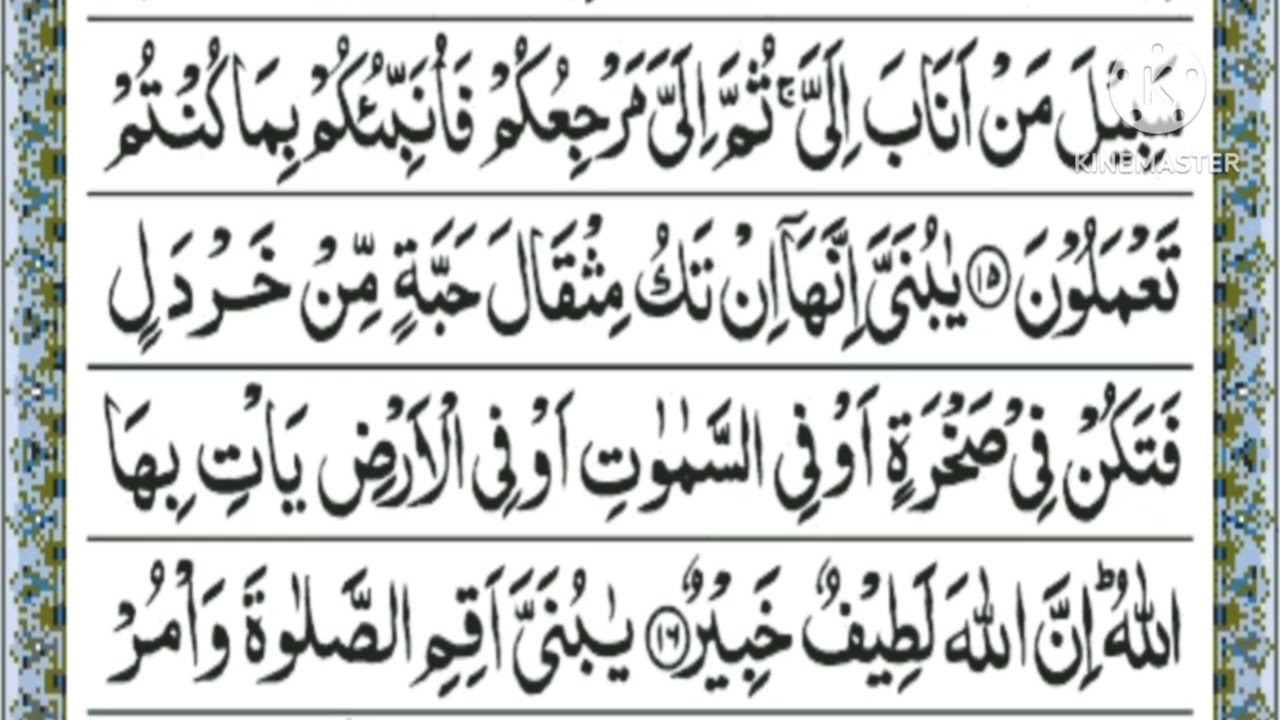 سَبِيْلَ مَنْ اَنَابَ اِلَىَّ ۚ ثُمَّ اِلَىَّ مَرْجِعُكُمْ فَاُنَبِّئُكُمْ بِمَا كُنْتُمْ
تَعْمَلُوْنَ ۝۱۵ يٰبُنَىَّ اِنَّهَآ اِنْ تَكُ مِثْقَالَ حَبَّةٍ مِّنْ خَرْدَلٍ
فَتَكُنْ فِىْ صَخْرَةٍ اَوْ فِى السَّمٰوٰتِ اَوْ فِى الْاَرْضِ يَاْتِ بِهَا
اللّٰهُ ؕ اِنَّ اللّٰهَ لَطِيْفٌ خَبِيْرٌ ۝۱۶ يٰبُنَىَّ اَقِمِ الصَّلٰوةَ وَاْمُرْ
KINEMASTER